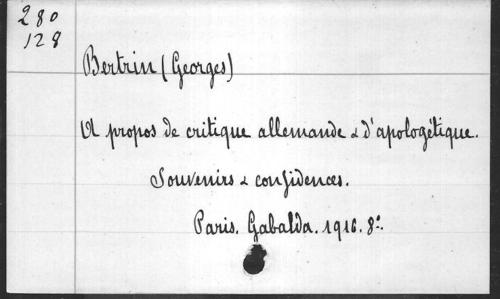 280
128
Bertrin (Georges)
A propos de critique allemande & d'apologétique.
Souvenirs & confidences.
Paris. Gabalda. 1916. 8º.